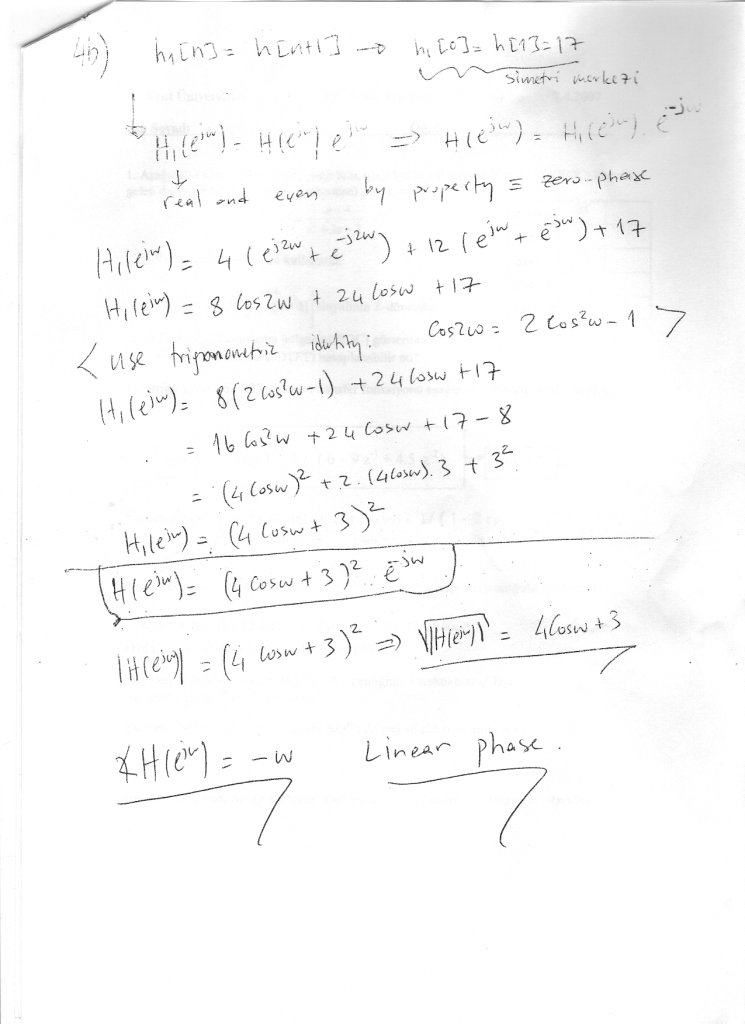 4b) h₁[n] = h[n+1] → h₁[0] = h[1] = 17
Simetri merkezi
H₁(e^{jw}) = H(e^{jw}) e^{jw} ⇒ H(e^{jw}) = H₁(e^{jw}). e^{-jw}
real and even by property ≡ zero-phase
H₁(e^{jw}) = 4(e^{j2w} + e^{-j2w}) + 12(e^{jw} + e^{-jw}) + 17
H₁(e^{jw}) = 8 Cos2w + 24 Cosw + 17
< use trigonometric identity: Cos2w = 2 Cos²w - 1 >
H₁(e^{jw}) = 8(2 Cos²w-1) + 24 Cosw + 17
= 16 Cos²w + 24 Cosw + 17 - 8
= (4 Cosw)² + 2.(4Cosw).3 + 3²
H₁(e^{jw}) = (4 Cosw + 3)²
H(e^{jw}) = (4 Cosw + 3)² e^{-jw}
|H(e^{jw})| = (4 Cosw + 3)² ⇒ √|H(e^{jw})| = 4Cosw + 3
∡H(e^{jw}) = -w Linear phase.